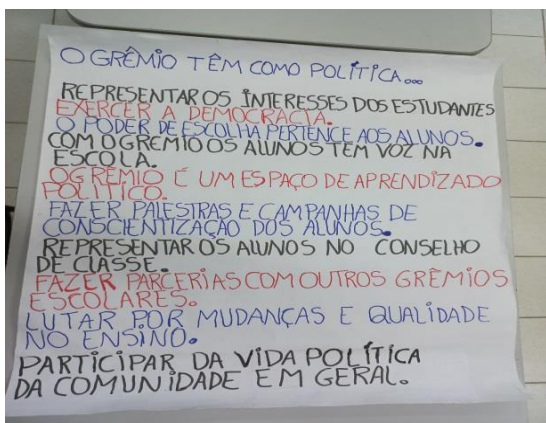 O GRÊMIO TÊM COMO POLÍTICA...
REPRESENTAR OS INTERESSES DOS ESTUDANTES
EXERCER A DEMOCRACIA.
O PODER DE ESCOLHA PERTENCE AOS ALUNOS.
COM O GREMIO OS ALUNOS TEM VOZ NA
ESCOLA.
O GRÊMIO É UM ESPAÇO DE APRENDIZADO
POLÍTICO.
FAZER PALESTRAS E CAMPANHAS DE
CONSCIENTIZAÇÃO DOS ALUNOS.
REPRESENTAR OS ALUNOS NO CONSELHO
DE CLASSE.
FAZER PARCERIAS COM OUTROS GRÊMIOS
ESCOLARES.
LUTAR POR MUDANÇAS E QUALIDADE
NO ENSINO.
PARTICIPAR DA VIDA POLÍTICA
DA COMUNIDADE EM GERAL.